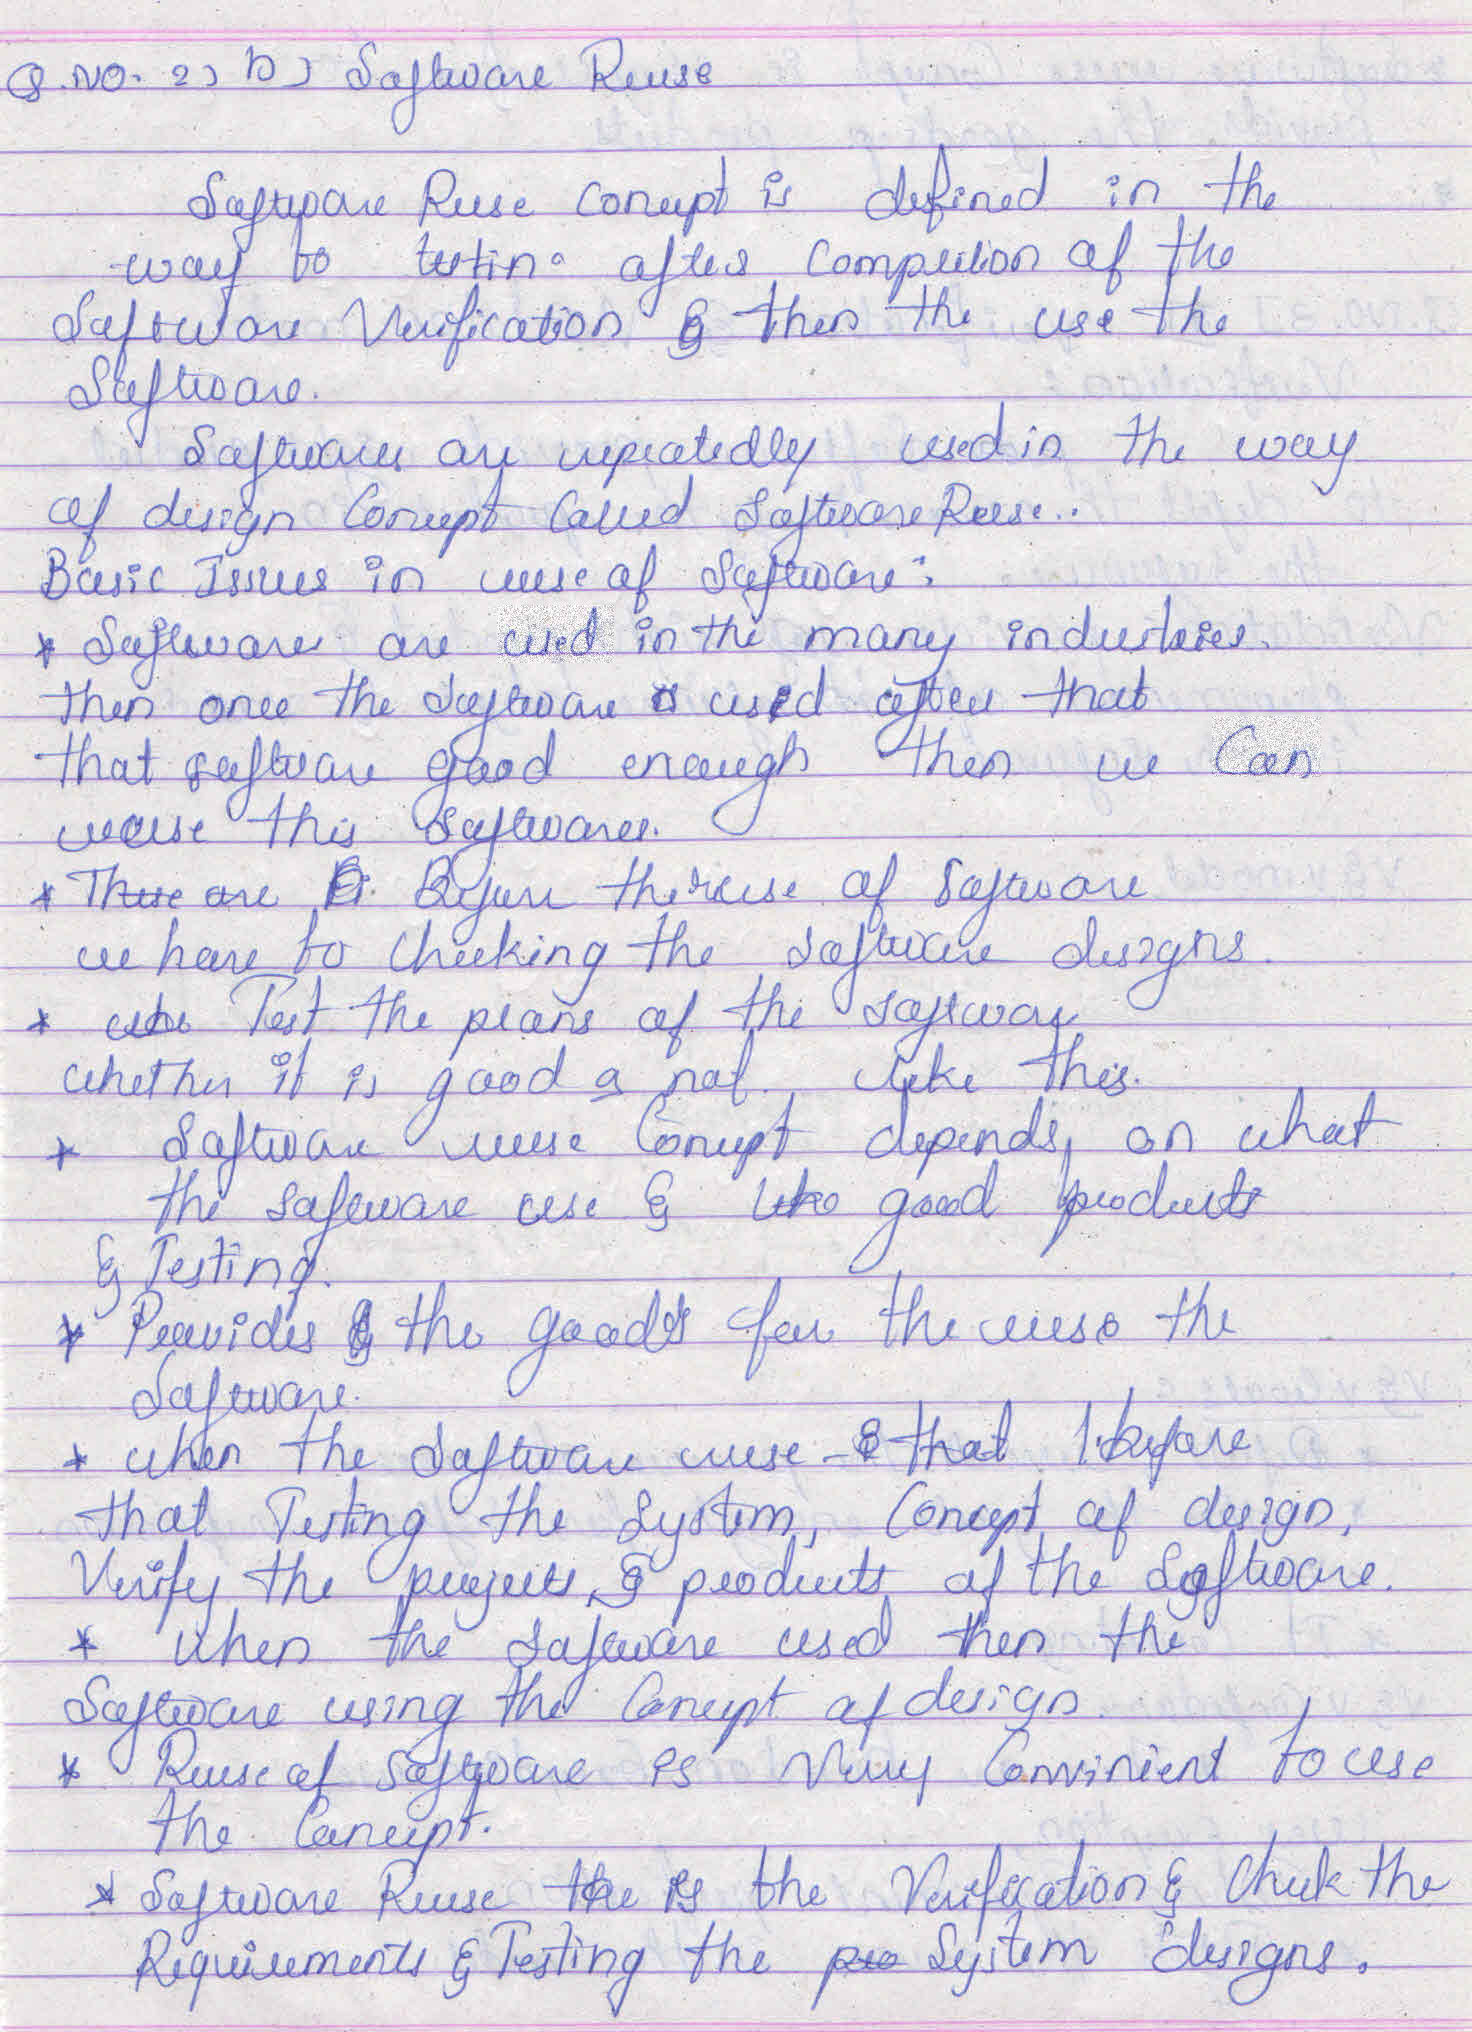 Q.NO. 2) b) Software Reuse
Software Reuse Concept is defined in the
way to testing after Completion of the
Software Verification & then the use the
Software.
Softwares are repeatedly used in the way
of design Concept Called Software Reuse..
Basic Issues in reuse of Software:
* Softwares are used in the many industries.
then once the Software is used after that
that software good enough then we Can
reuse this softwares.
* There are Before the reuse of Software
we have to Checking the Software designs.
* Test the plans of the Software
whether it is good or not. like this.
* Software reuse Concept depends on what
the Software use & good products
& Testing.
* Provides the goods for the reuse the
Software.
* when the Software reuse that before
that Testing the System, Concept of design,
Verify the projects, & products of the Software.
* When the Software used then the
Software using the Concept of design.
* Reuse of Software is Very Convinient to use
the Concept.
* Software Reuse the is the Verification & Check the
Requirements & Testing the pro System designs.